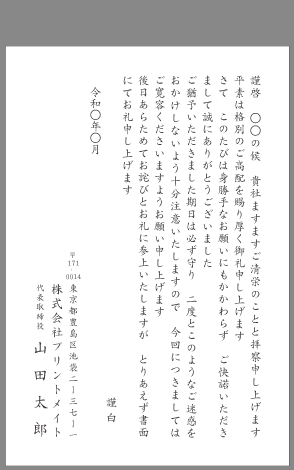 謹啓　〇〇の候　貴社ますますご清栄のことと拝察申し上げます
平素は格別のご高配を賜り厚く御礼申し上げます
さて　このたびは身勝手なお願いにもかかわらず　ご快諾いただき
まして誠にありがとうございました
ご猶予いただきました期日は必ず守り　二度とこのようなご迷惑を
おかけしないよう十分注意いたしますので　今回につきましては
ご寛容くださいますようお願い申し上げます
後日あらためてお詫びとお礼に参上いたしますが　とりあえず書面
にてお礼申し上げます
謹白
令和〇年〇月
〒171-0014
東京都豊島区池袋二ー三七ー一
株式会社プリントメイト
代表取締役　山田太郎